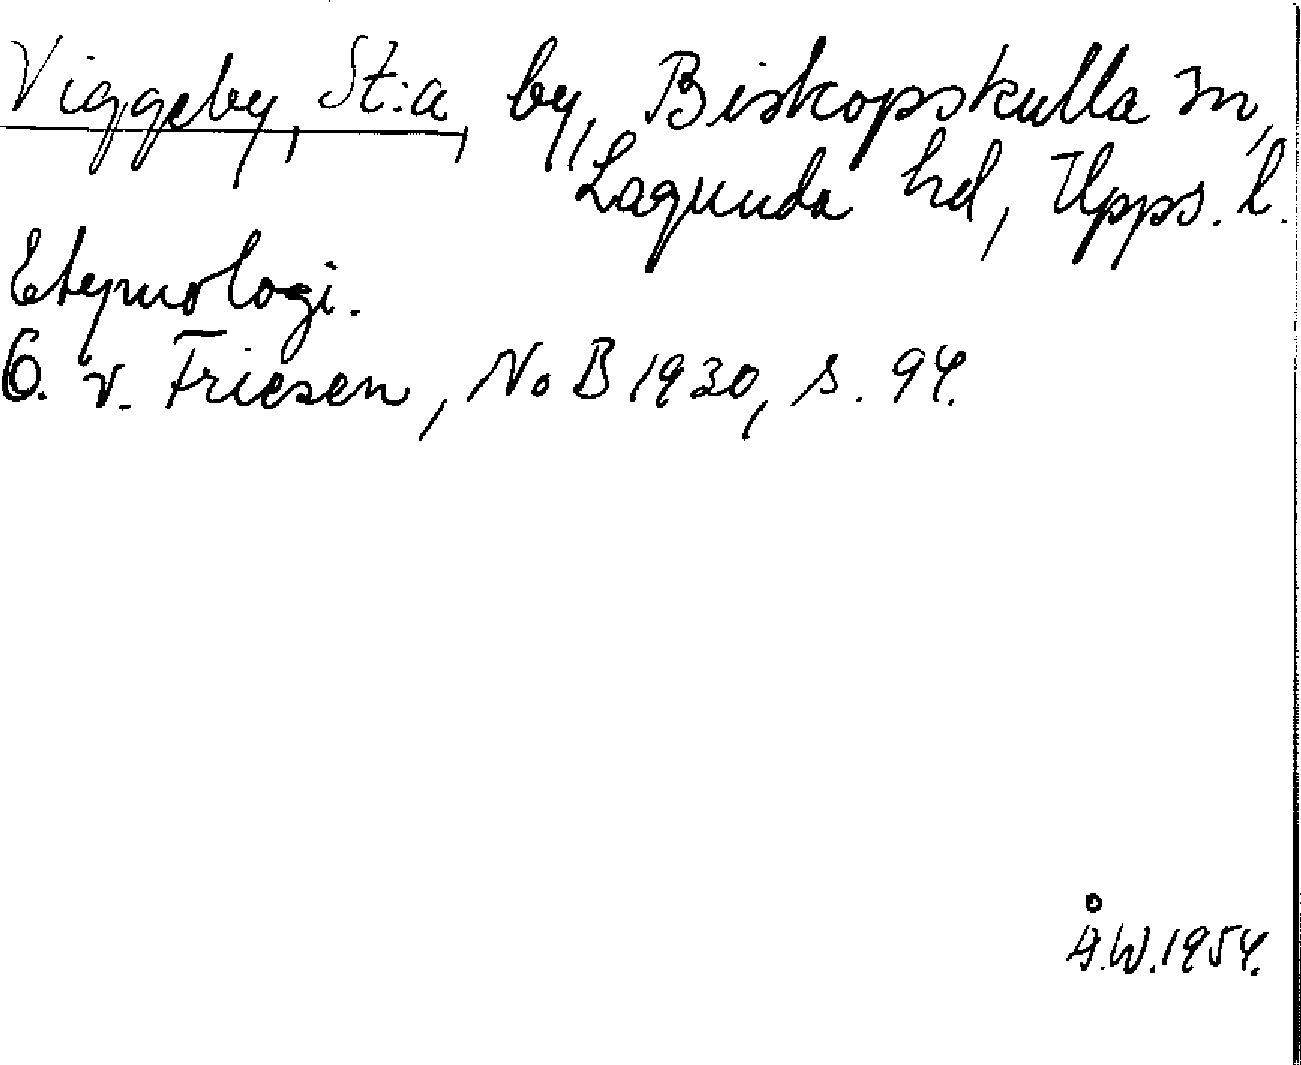 Viggeby, St:a, by, Biskopskulla sn,
Lagunda hd, Upps. l.
Etymologi.
O. v. Friesen, NoB 1930, s. 94.
Å.W.1954.